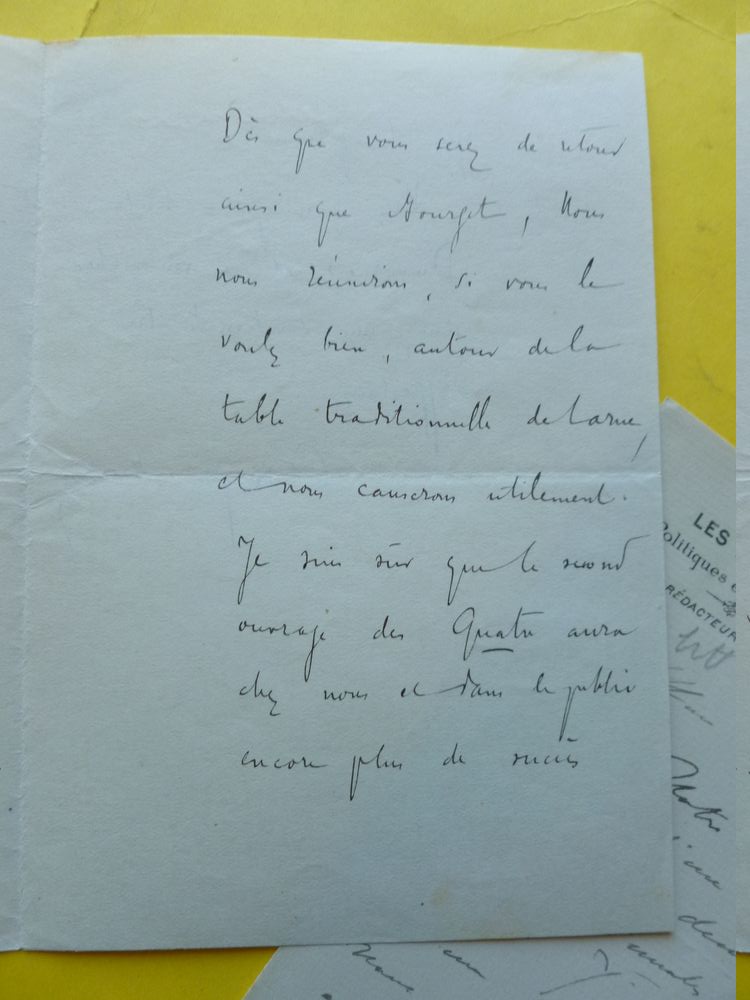 Dès que vous serez de retour
ainsi que Hourget, Nous
nous réunirons, si vous le
voulez bien, autour de la
table traditionnelle de Larue,
et nous causerons utilement.
Je suis sûr que le second
ouvrage des Quatre aura
chez nous et dans le public
encore plus de succès
LES
Politiques
RÉDACTEUR